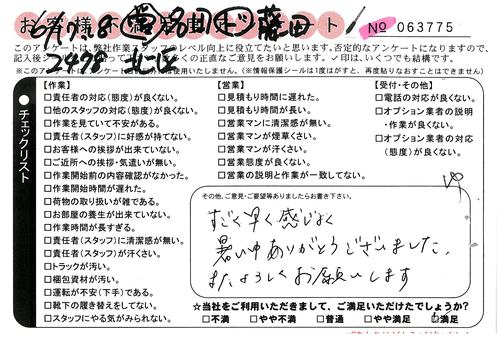 No 063775
このアンケートは、弊社作業スタッフのレベル向上に役立てたいと思います。否定的なアンケートになりますので、
正直なご意見をお願いします。✓印は、いくつでも結構です。
※このアンケートは
使用いたしません。(※情報保護シールは1度はがすと、再度貼りなおすことはできません)
チェックリスト
【作業】
□責任者の対応(態度)が良くない。
□他のスタッフの対応(態度)が良くない。
□作業を見ていて不安がある。
□責任者(スタッフ)に好感が持てない。
□お客様への挨拶が出来ていない。
□ご近所への挨拶・気遣いが無い。
□作業開始前の内容確認がなかった。
□作業開始時間が遅れた。
□荷物の取り扱いが雑である。
□お部屋の養生が出来ていない。
□作業時間が長すぎる。
□責任者(スタッフ)に清潔感が無い。
□責任者(スタッフ)が汗くさい。
□トラックが汚い。
□梱包資材が汚い。
□運転が不安(下手)である。
□靴下の履き替えをしてない。
□スタッフにやる気がみられない。
【営業】
□見積もり時間に遅れた。
□見積もり時間が長い。
□営業マンに清潔感が無い。
□営業マンが煙草くさい。
□営業マンが汗くさい。
□営業態度が良くない。
□営業の説明と作業が一致してない。
【受付・その他】
□電話の対応が良くない。
□オプション業者の説明
・作業が良くない。
□オプション業者の対応
(態度)が良くない。
その他、ご意見・ご要望等ありましたらお書き下さい。
すごく早く感じよく
暑い中ありがとうございました。
またよろしくお願いします
☆当社をご利用いただきまして、ご満足いただけたでしょうか？
□不満 □やや不満 □普通 □やや満足 □満足